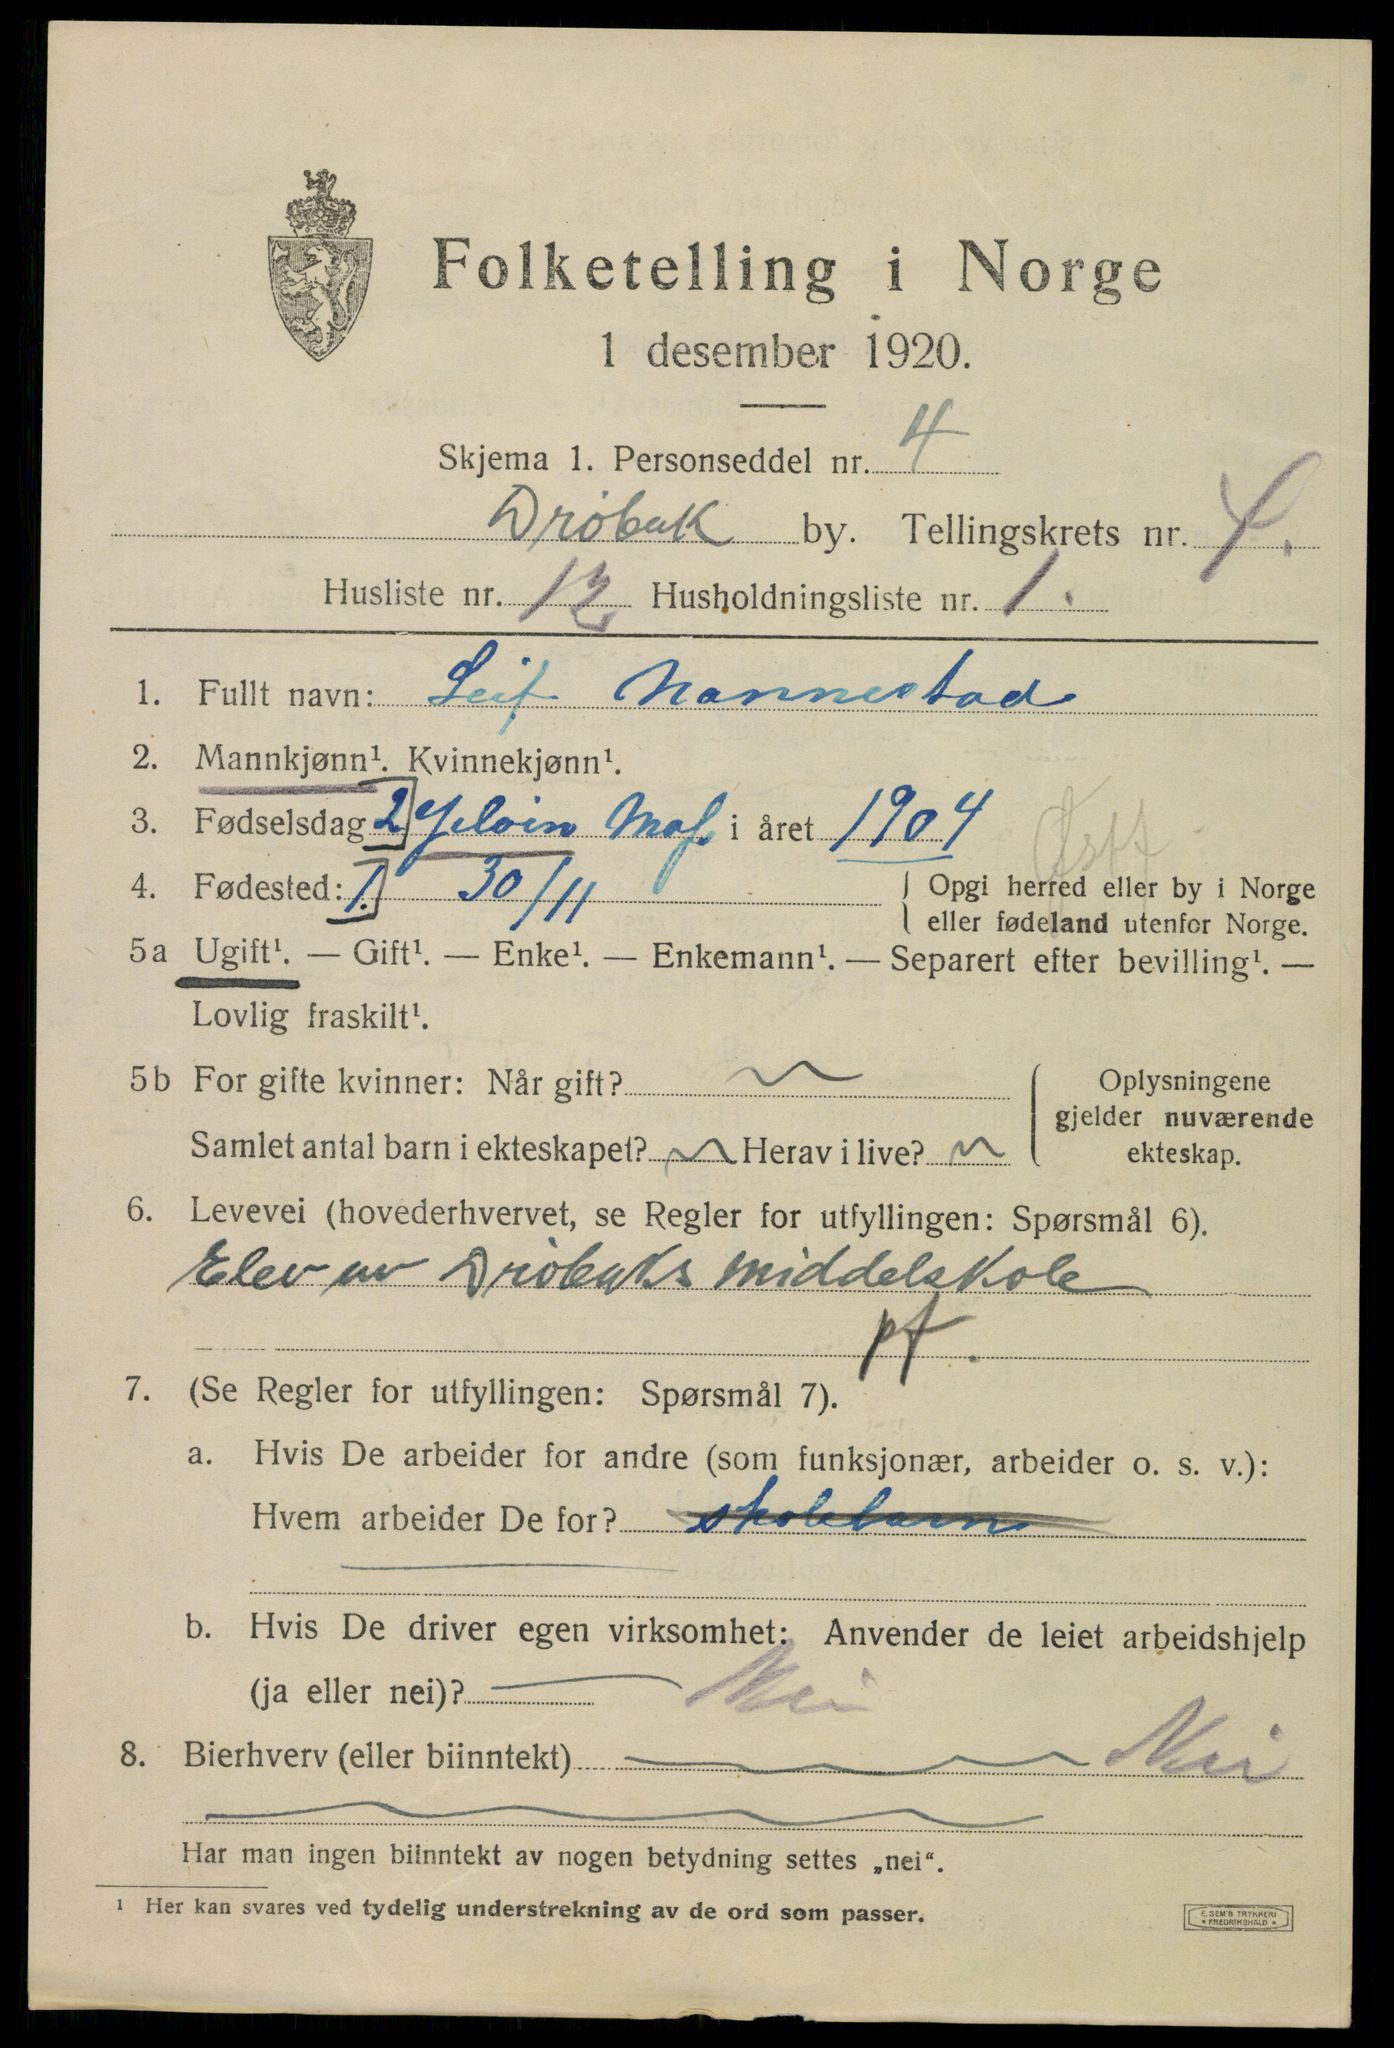 Folketelling i Norge
1 desember 1920.
Skjema 1. Personseddel nr. 4
Drøbak by. Tellingskrets nr. 4.
Husliste nr. 12 Husholdningsliste nr. 1.
1. Fullt navn: Leif Mannestad
2. Mannkjønn¹. Kvinnekjønn¹.
3. Fødselsdag 2] i året 1904
4. Fødested: 1.] 30/11 Opgi herred eller by i Norge
eller fødeland utenfor Norge.
Østf
5a Ugift¹. — Gift¹. — Enke¹. — Enkemann¹. — Separert efter bevilling¹. —
Lovlig fraskilt¹.
5b For gifte kvinner: Når gift?
Samlet antal barn i ekteskapet? Herav i live?
Oplysningene
gjelder nuværende
ekteskap.
6. Levevei (hovederhvervet, se Regler for utfyllingen: Spørsmål 6).
Elev av Drøbaks middelskole
pf.
7. (Se Regler for utfyllingen: Spørsmål 7).
a. Hvis De arbeider for andre (som funksjonær, arbeider o. s. v.):
Hvem arbeider De for? skolebarn
b. Hvis De driver egen virksomhet: Anvender de leiet arbeidshjelp
(ja eller nei)? Nei
8. Bierhverv (eller biinntekt) Nei
Har man ingen biinntekt av nogen betydning settes „nei“.
¹ Her kan svares ved tydelig understrekning av de ord som passer.
E. SEM'S TRYKKERI
FREDRIKSHALD